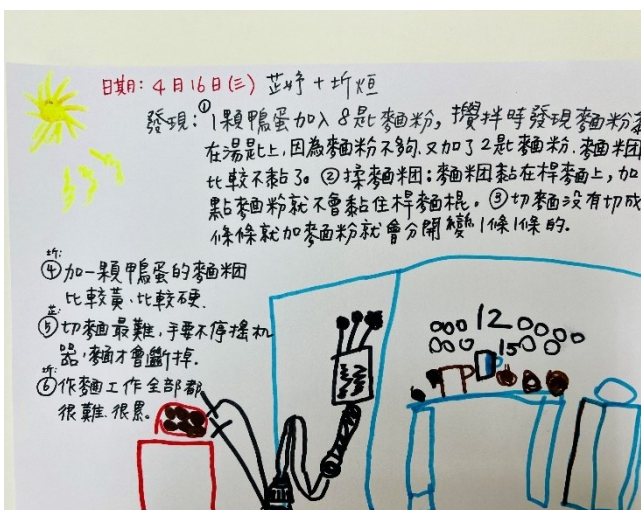 日期：4月16日(三) 芷妤＋圻烜
發現：①1顆鴨蛋加入8匙麵粉，攪拌時發現麵粉
在湯匙上，因為麵粉不夠.又加了2匙麵粉.麵粉团
比較不黏了。②揉麵粉团：麵粉团黏在桿麵上，加
點麵粉就不會黏住桿麵棍。③切麵没有切成
條條就加麵粉就會分開變1條1條的.
圻:
④加一顆鴨蛋的麵粉团
比較黃、比較硬.
芷:
⑤切麵最難，手要不停搖机
器，麵才會斷掉.
圻:
⑥作麵工作全部都
很難.很累。
12
15